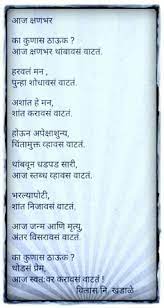 आज क्षणभर
का कुणास ठाऊक ?
आज क्षणभर थांबावसं वाटतं.
हरवलं मन ,
पुन्हा शोधावसं वाटतं.
अशांत हे मन,
शांत करावसं वाटतं.
होऊन अपेक्षाशुन्य,
चिंतामुक्त व्हावसं वाटतं.
थांबवून धडपड सारी,
आज स्तब्ध व्हावसं वाटतं.
भरल्यापोटी,
शांत निजावसं वाटतं.
आज जन्म आणि मृत्यु,
अंतर विसरावसं वाटतं.
का कुणास ठाऊक ?
थोडसं प्रेम,
आज स्वतःवर करावसं वाटतं !
विलास नि. खडाळे